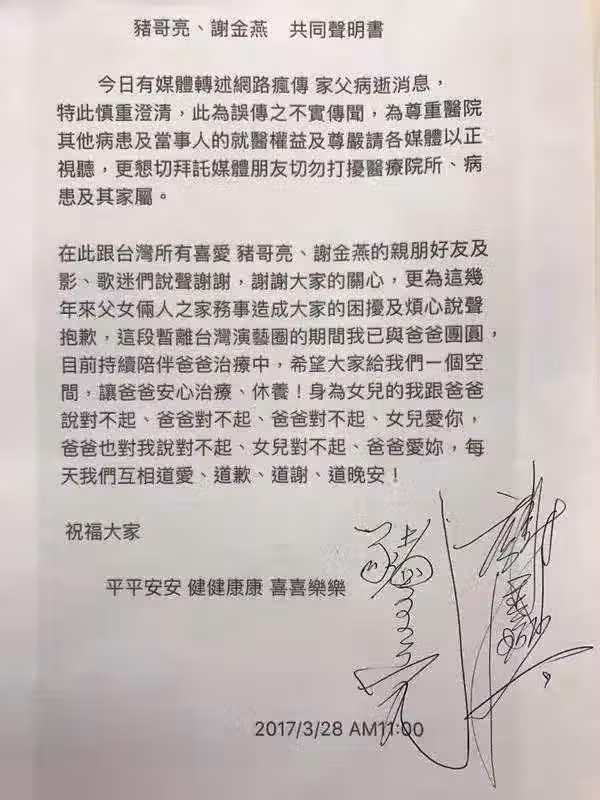 豬哥亮、謝金燕 共同聲明書
今日有媒體轉述網路瘋傳 家父病逝消息，
特此慎重澄清，此為誤傳之不實傳聞，為尊重醫院
其他病患及當事人的就醫權益及尊嚴請各媒體以正
視聽，更懇切拜託媒體朋友切勿打擾醫療院所、病
患及其家屬。
在此跟台灣所有喜愛 豬哥亮、謝金燕的親朋好友及
影、歌迷們說聲謝謝，謝謝大家的關心，更為這幾
年來父女倆人之家務事造成大家的困擾及煩心說聲
抱歉，這段暫離台灣演藝圈的期間我已與爸爸團圓，
目前持續陪伴爸爸治療中，希望大家給我們一個空
間，讓爸爸安心治療、休養！身為女兒的我跟爸爸
說對不起、爸爸對不起、爸爸對不起、女兒愛你，
爸爸也對我說對不起、女兒對不起、爸爸愛妳，每
天我們互相道愛、道歉、道謝、道晚安！
祝福大家
平平安安 健健康康 喜喜樂樂
豬哥亮
謝金燕
2017/3/28 AM11:00